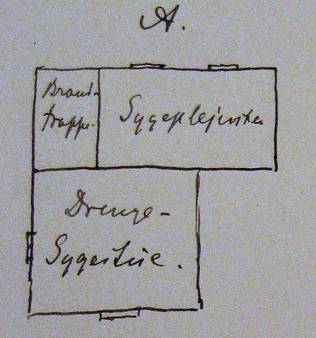 A.
Brand-
trappe.
Sygeplejersken
Drenge-
Sygestue.